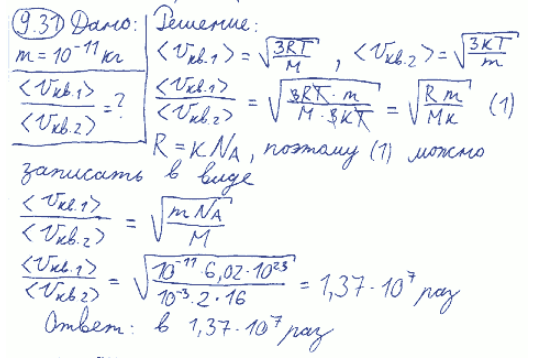 9.31 Дано: Решение:
m = 10^-11 кг <Vкв.1> = √(3RT/M), <Vкв.2> = √(3кT/m)
<Vкв.1>/<Vкв.2> = ? <Vкв.1>/<Vкв.2> = √(3RT·m/M·3кT) = √(Rm/Mк) (1)
R = кNA, поэтому (1) можно
записать в виде
<Vкв.1>/<Vкв.2> = √(mNA/M)
<Vкв.1>/<Vкв.2> = √(10^-11·6,02·10^23/10^-3·2·16) = 1,37·10^7 раз
Ответ: в 1,37·10^7 раз